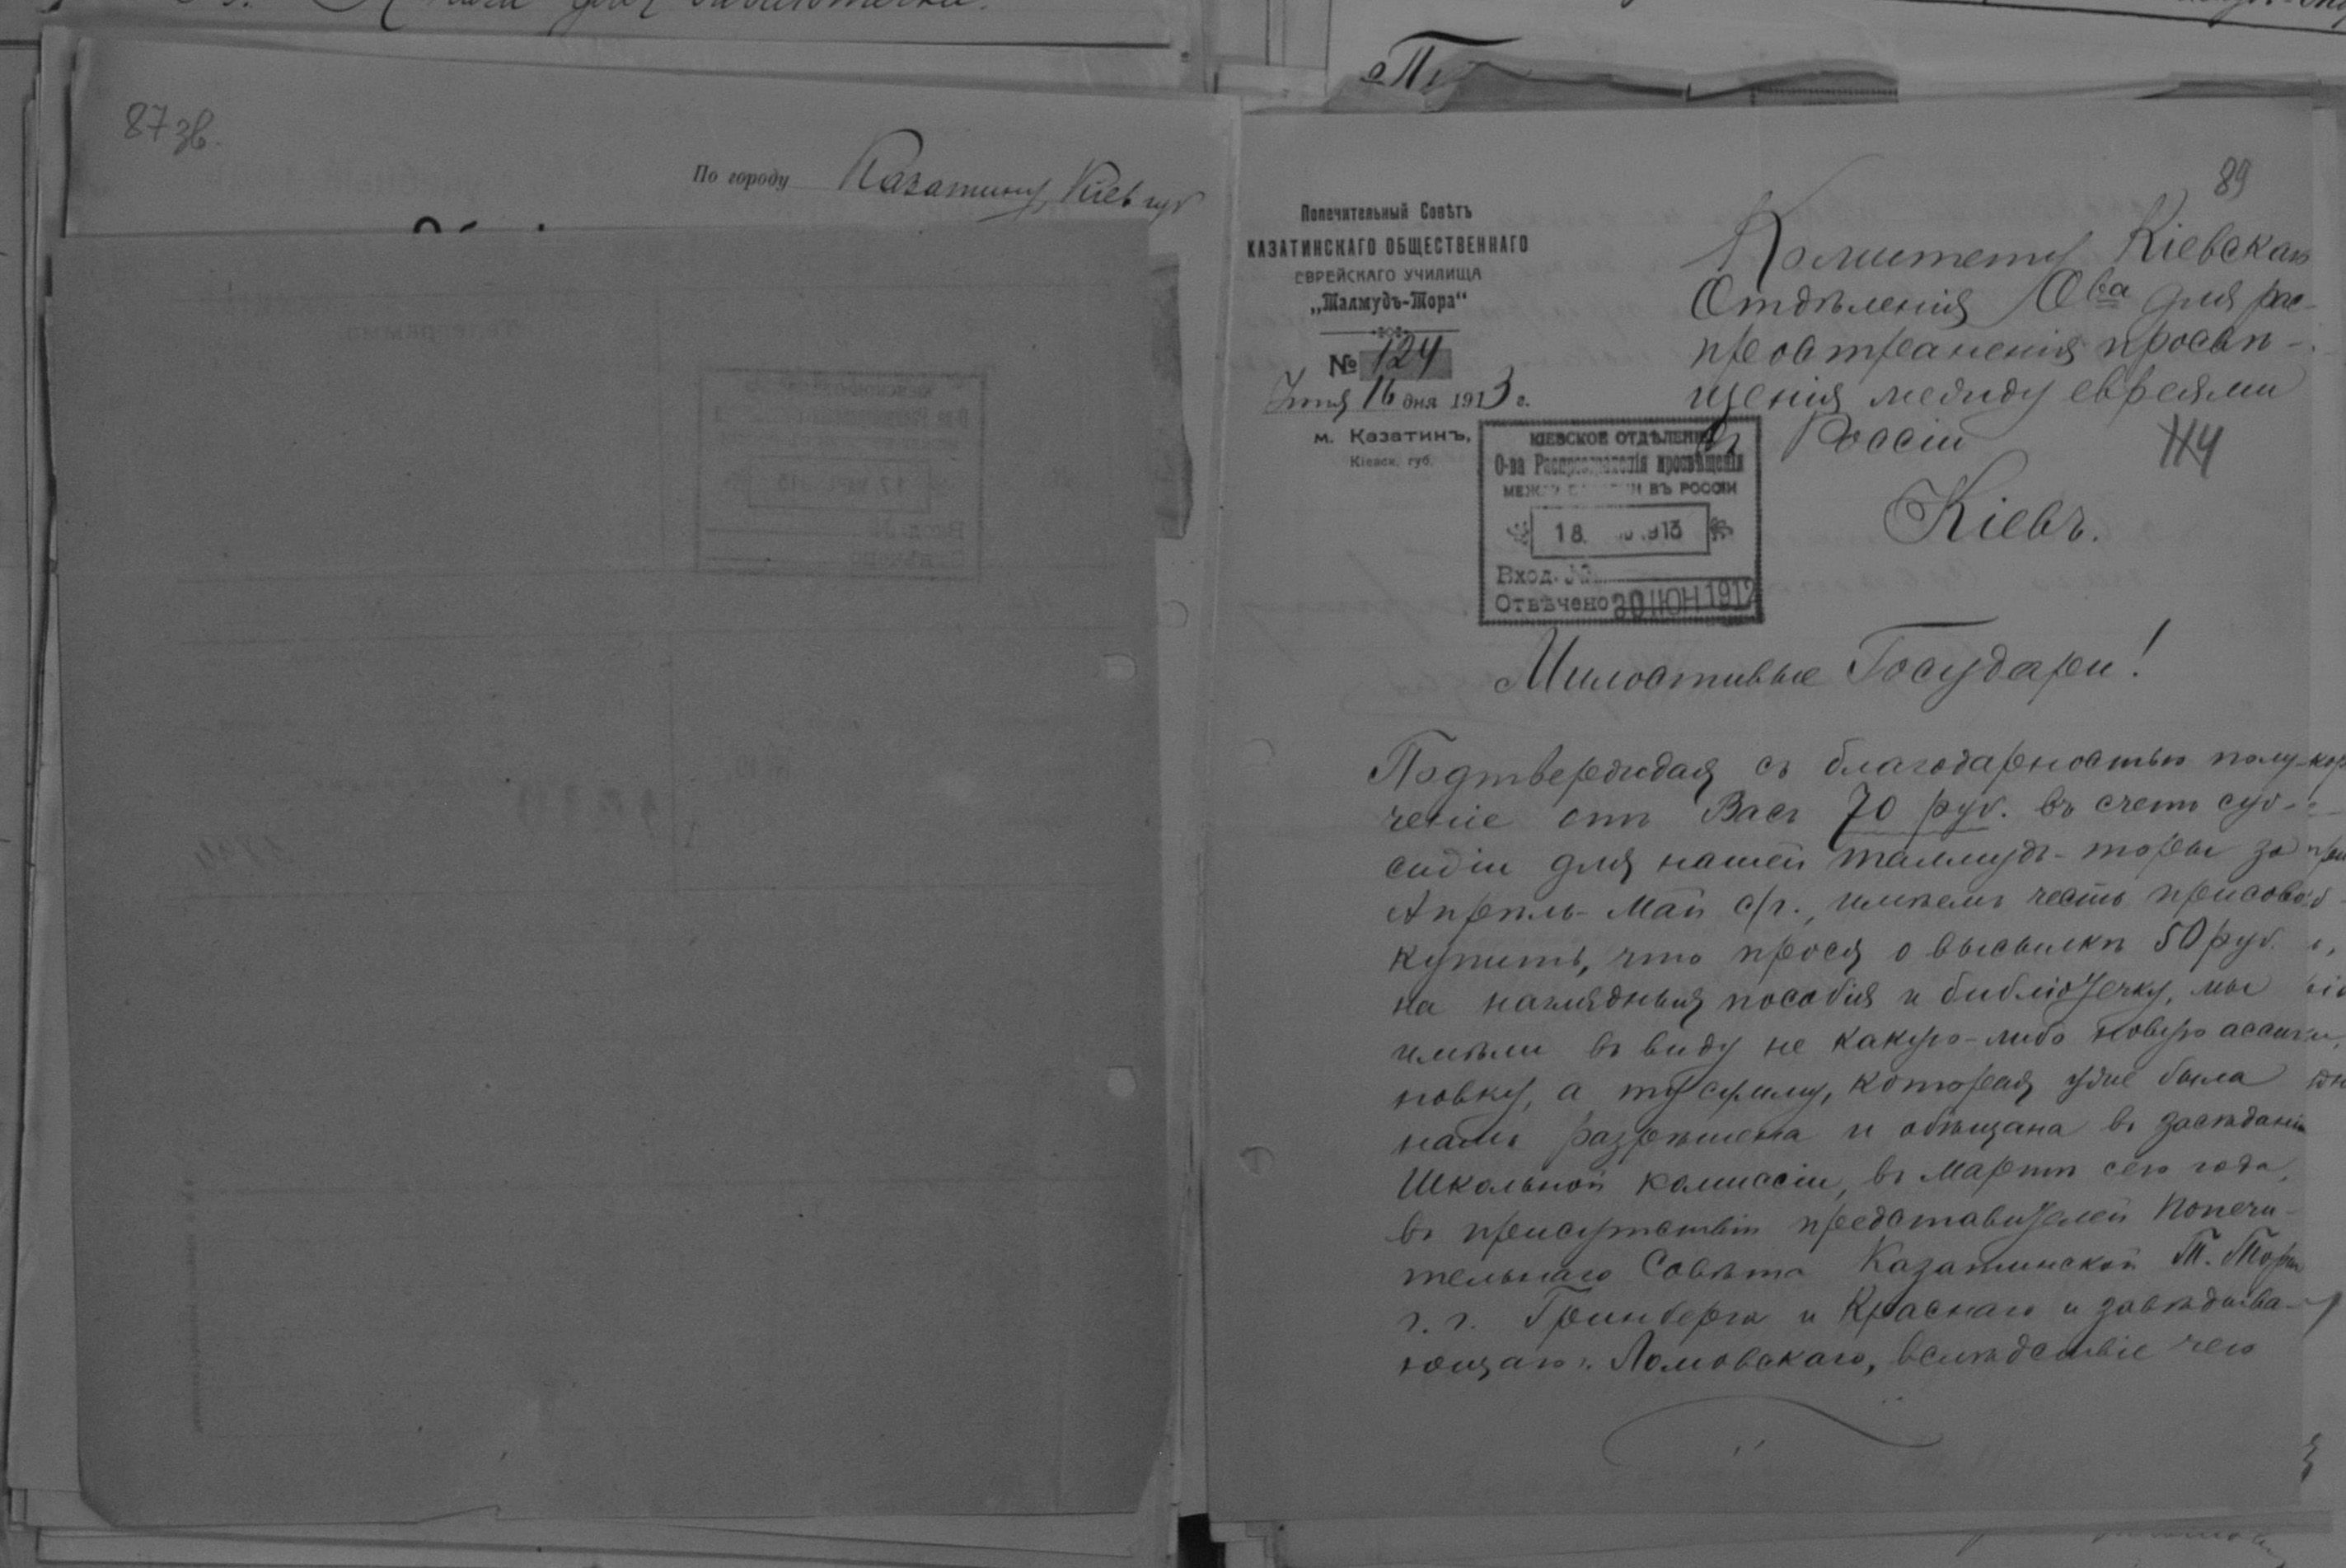 87 зв.
По городу Казатину, Кіев губ
89
Попечительный Совѣтъ
КАЗАТИНСКАГО ОБЩЕСТВЕННАГО
ЕВРЕЙСКАГО УЧИЛИЩА
„Талмудъ-Тора“
№ 124
Іюня 16 дня 1913 г.
м. Казатинъ,
Кіевск. губ.
Комитету Кіевскаго
Отдѣленія О-ва для рас-
пространенія просвѣ-
щенія между евреями
въ Россіи
Кіевъ.
КІЕВСКОЕ ОТДѢЛЕНІЕ
О-ва Распространенія просвѣщенія
МЕЖДУ ЕВРЕЯМИ ВЪ РОССІИ
18 1913
Вход. №
Отвѣчено 30 ІЮН 191
Милостивые Государи!
Подтверждая съ благодарностью полу-
ченіе отъ Васъ 70 руб. въ счетъ суб-
сидіи для нашей талмудъ-торы за
Апрѣль-Май с/г., имѣемъ честь присово-
купить, что прося о высылкѣ 50 руб.
на наглядныя пособія и библіотечку, мы
имѣли въ виду не какую-либо новую ассиг-
новку, а ту сумму, которая уже была
намъ разрѣшена и обѣщана въ засѣданіи
Школьной комиссіи, въ Мартѣ сего года,
въ присутствіи представителей Попечи-
тельнаго Совѣта Казатинской Т. Торы
г.г. Гринберга и Краснаго и завѣдыва-
ющаго г. Ломовскаго, вслѣдствіе чего